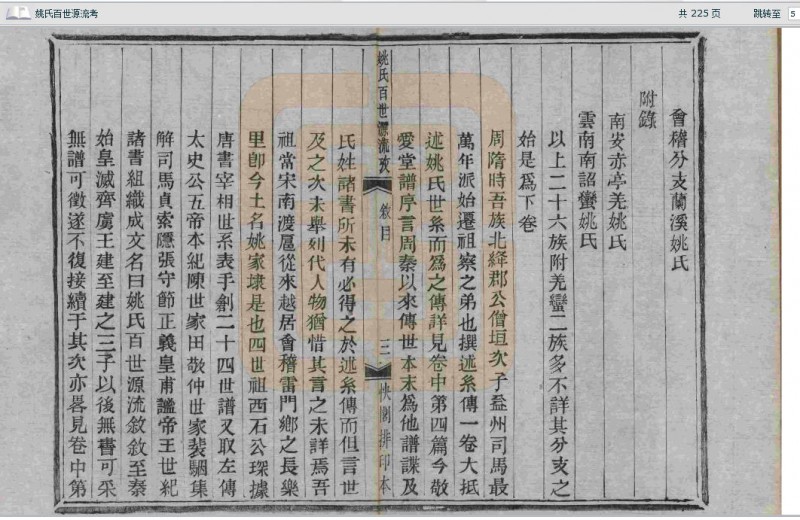 姚氏百世源流考
共 225 页
跳转至
5
會稽分支蘭溪姚氏
附錄
南安赤亭羌姚氏
雲南南詔蠻姚氏
以上二十六族附羌蠻二族多不詳其分支之
始是爲下卷
周隋時吾族北絳郡公僧垣次子益州司馬最
萬年派始遷祖察之弟也撰述系傳一卷大抵
述姚氏世系而爲之傳詳見卷中第四篇今敬
愛堂譜序言周秦以來傳世本末爲他譜諜及
姚氏百世源流攷
敘目
三
快閣排印本
氏姓諸書所未有必得之於述系傳而但言世
及之次未舉列代人物猶惜其言之未詳焉吾
祖當宋南渡扈從來越居會稽雷門鄉之長樂
里卽今土名姚家埭是也四世祖西石公琛據
唐書宰相世系表手創二十四世譜又取左傳
太史公五帝本紀陳世家田敬仲世家裴駰集
解司馬貞索隱張守節正義皇甫謐帝王世紀
諸書組織成文名曰姚氏百世源流敘敘至秦
始皇滅齊虜王建至建之三子以後無書可采
無譜可徵遂不復接續于其次亦畧見卷中第